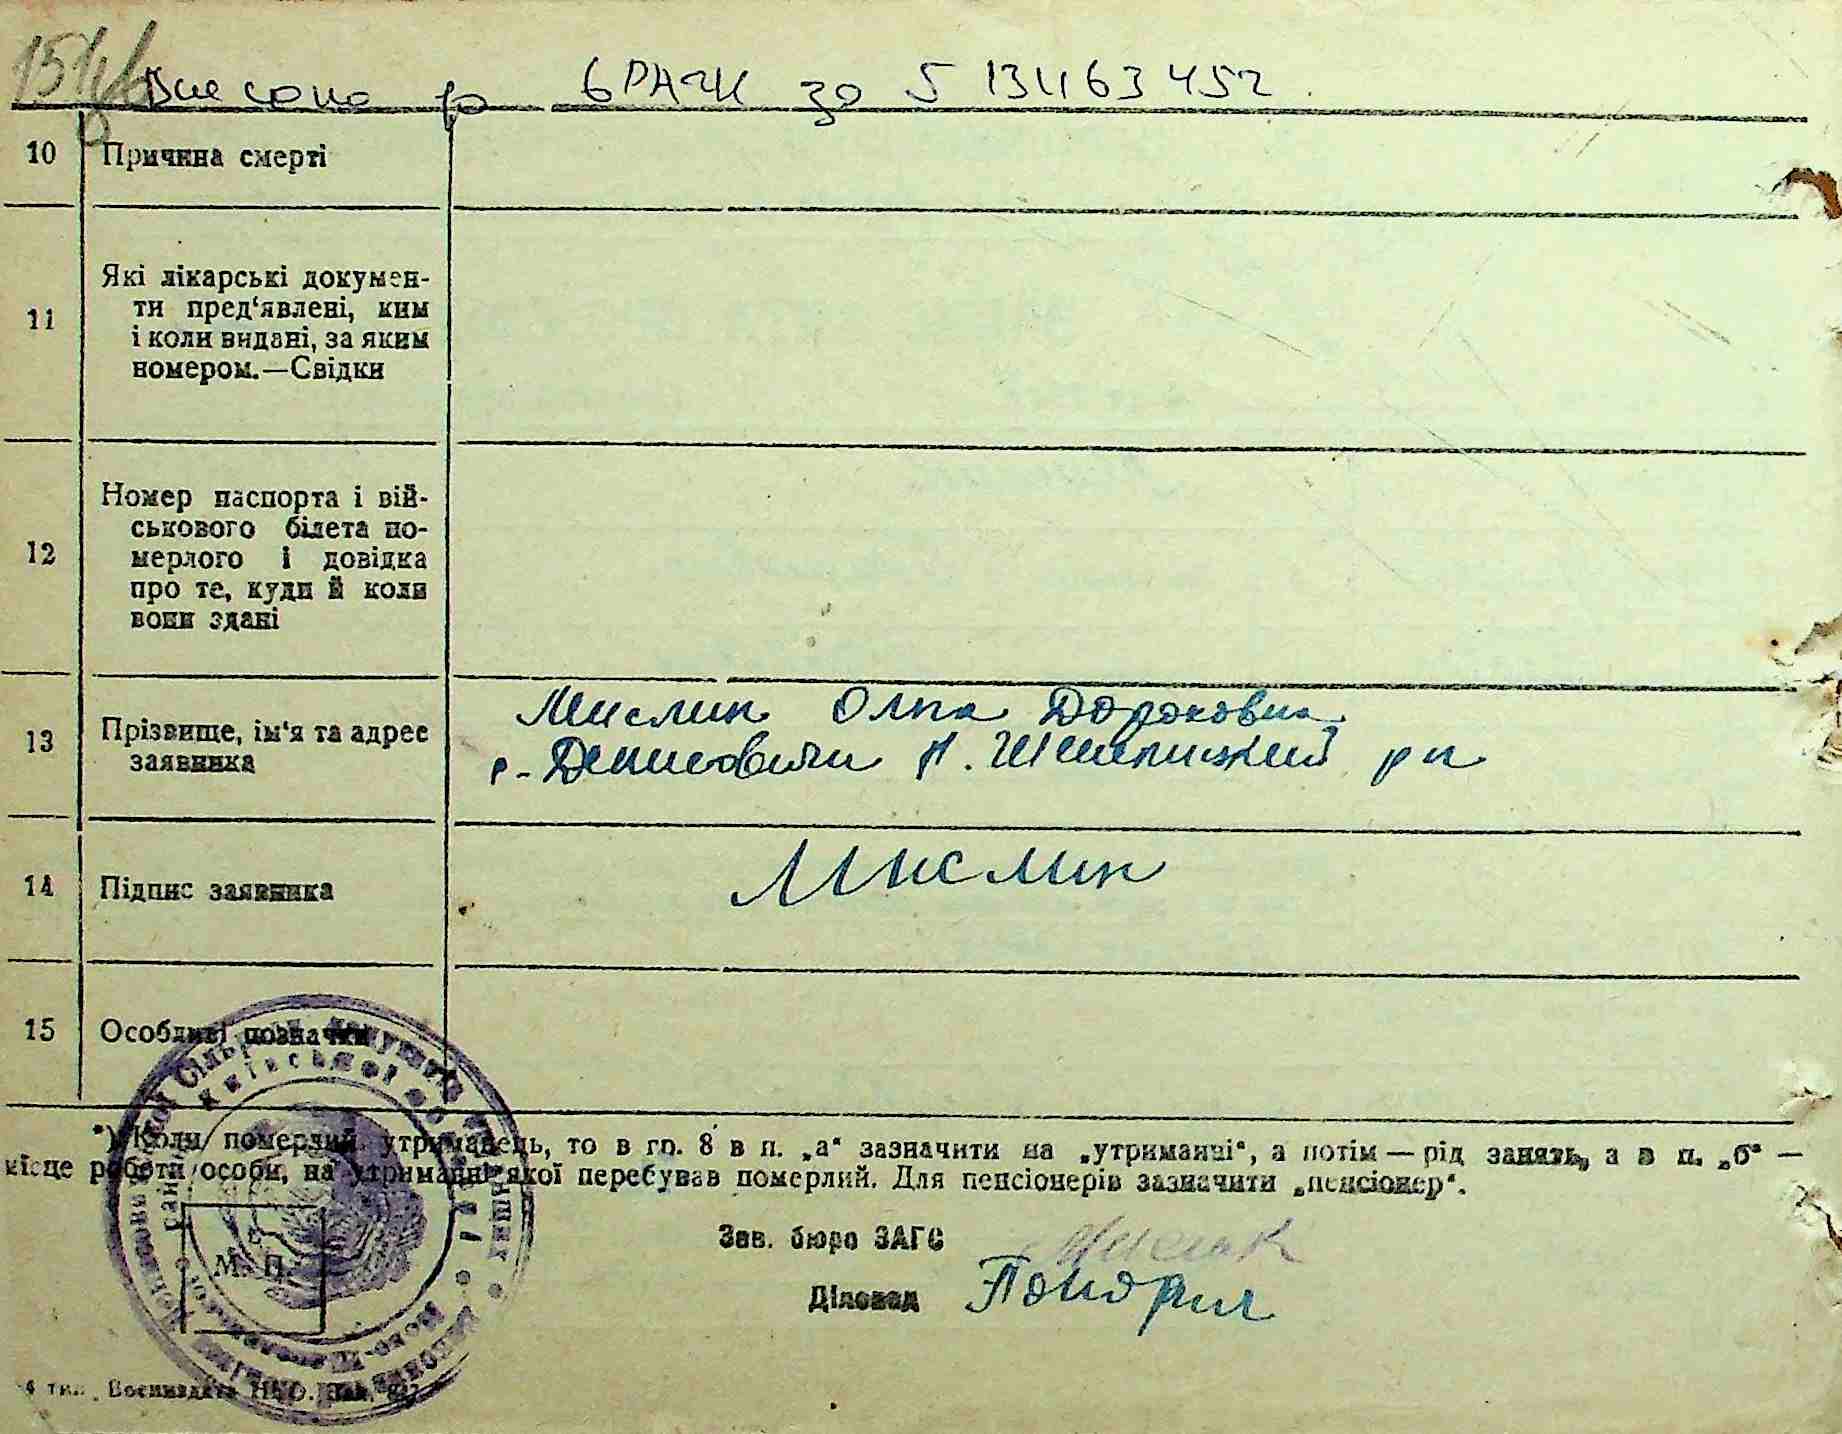 Внесено до ДРАЦС за 5 131163452
10 Причина смерті
11 Які лікарські докумен-
ти пред‘явлені, ким
і коли видані, за яким
номером.—Свідки
12 Номер паспорта і вій-
ськового білета по-
мерлого і довідка
про те, куди й коли
вони здані
13 Прізвище, ім‘я та адрес
заявника
Мислик Олпа
с. Денисовичи Н. Шепелицкий рн
14 Підпис заявника Мислик
15 Особливі позначки
*) Коли померлий утриманець, то в гр. 8 в п. „а“ зазначити на „утриманні“, а потім — рід занять, а в п. „б“ —
місце роботи особи, на утриманні якої перебував померлий. Для пенсіонерів зазначити „пенсіонер“.
Зав. бюро ЗАГС
Діловод
М. П.
Київської